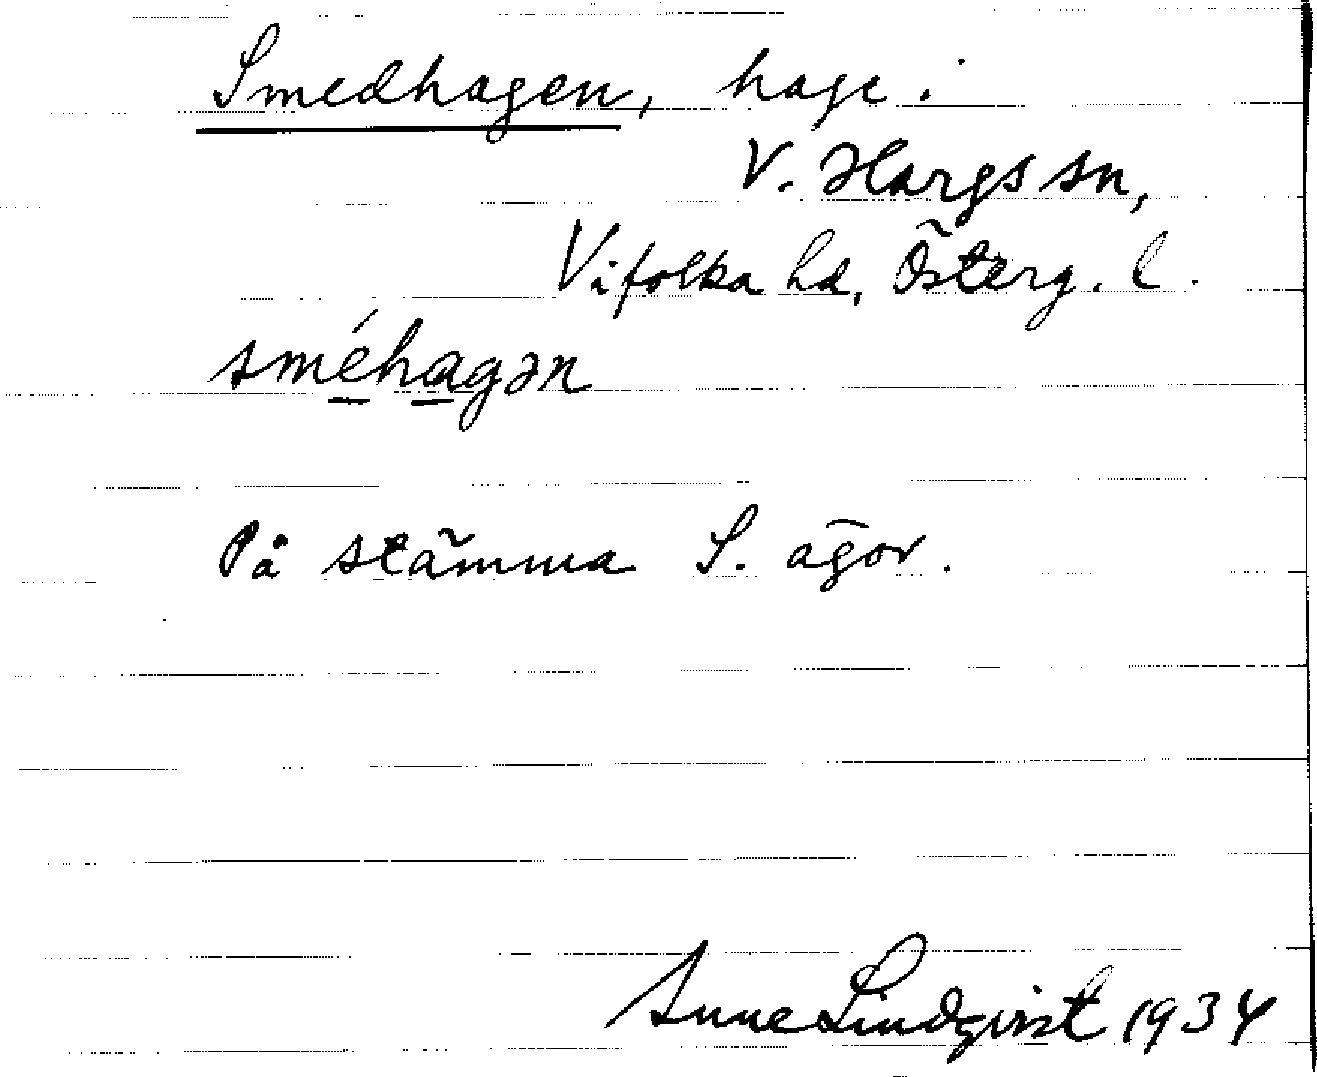 Smedhagen, hage i
V. Hargs sn,
Vifolka hd, Österg. l.
sméhagən
På stämma S. ägor.
Sune Lindqvist 1934